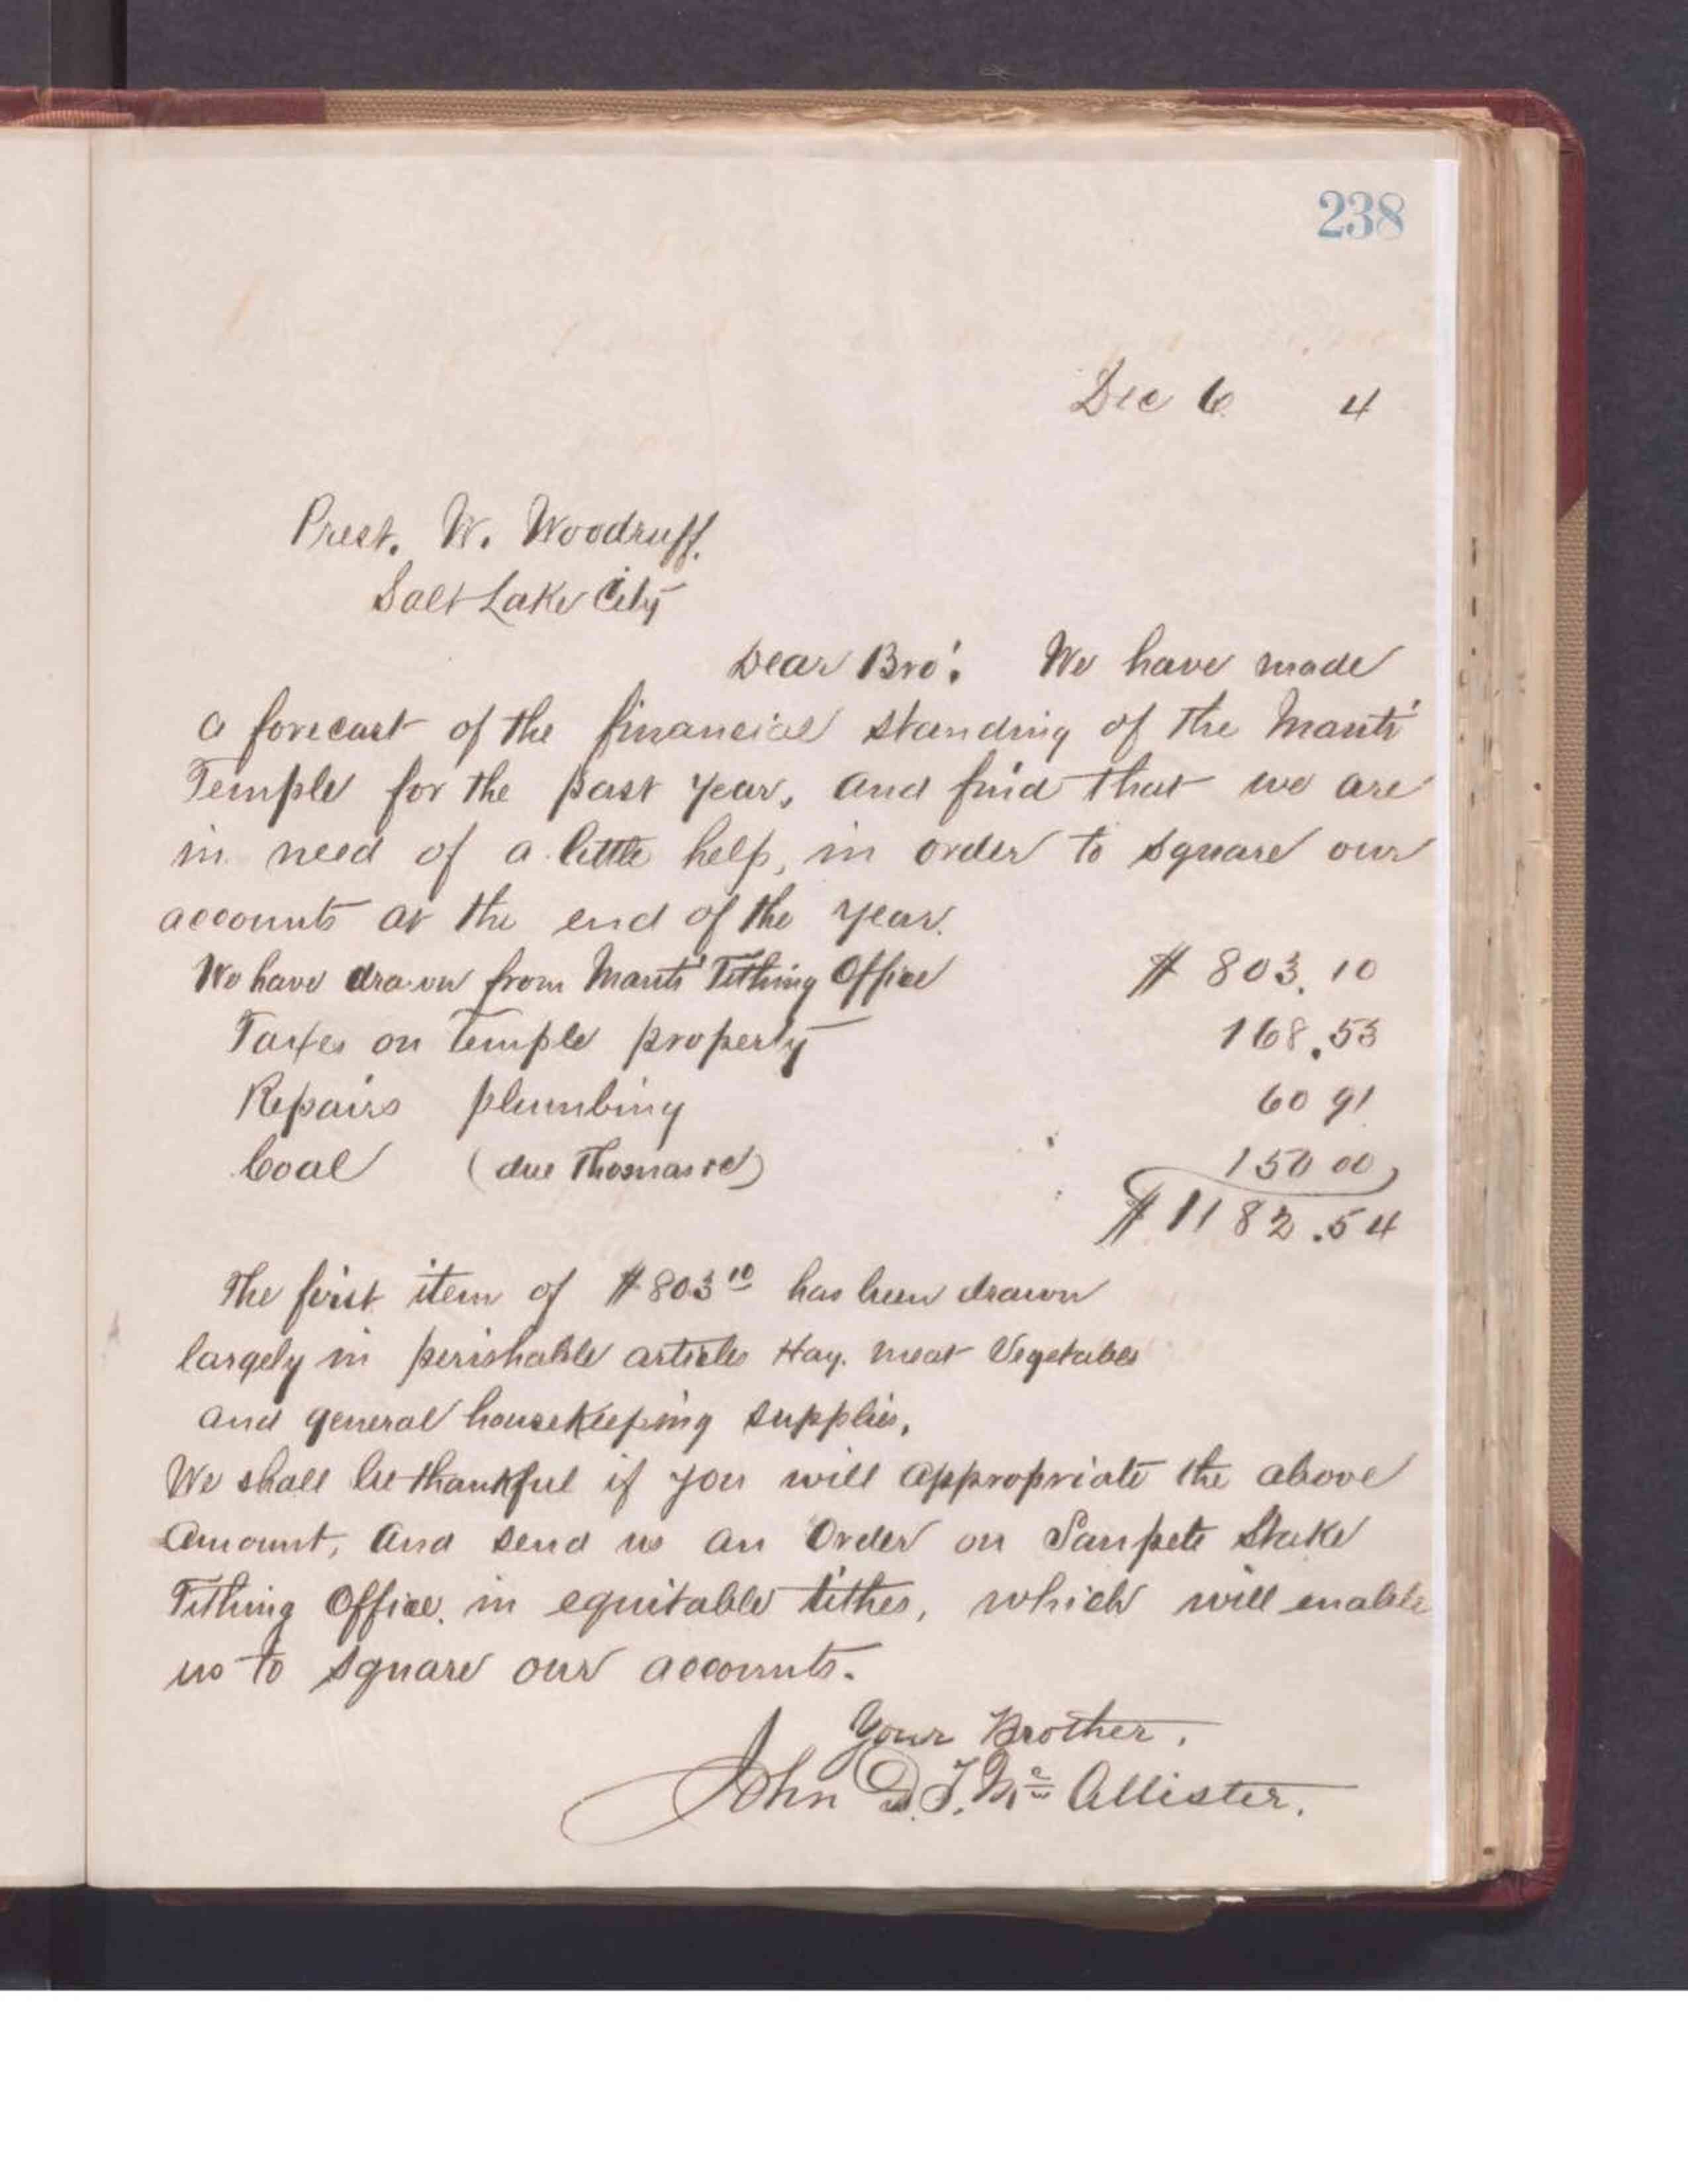 238
Dec 6 4
Prest. W. Woodruff.
Salt Lake City
Dear Bro'. We have made
a forecast of the financial standing of the Manti
Temple for the past year, and find that we are
in need of a little help, in order to square our
accounts at the end of the year.
We have drawn from Manti Tithing Office $ 803.10
Taxes on Temple property 168.53
Repairs plumbing 60 91
Coal (due Thomas 150 00
$ 1182.54
The first item of $803 10 has been drawn
largely in perishable articles Hay. meat Vegetables
and general housekeeping supplies,
We shall be thankful if you will appropriate the above
amount, and send us an Order on Sanpete Stake
Tithing Office. in equitable tithes, which will enable
us to square our accounts.
Your Brother,
John D. T. Mc Allister.